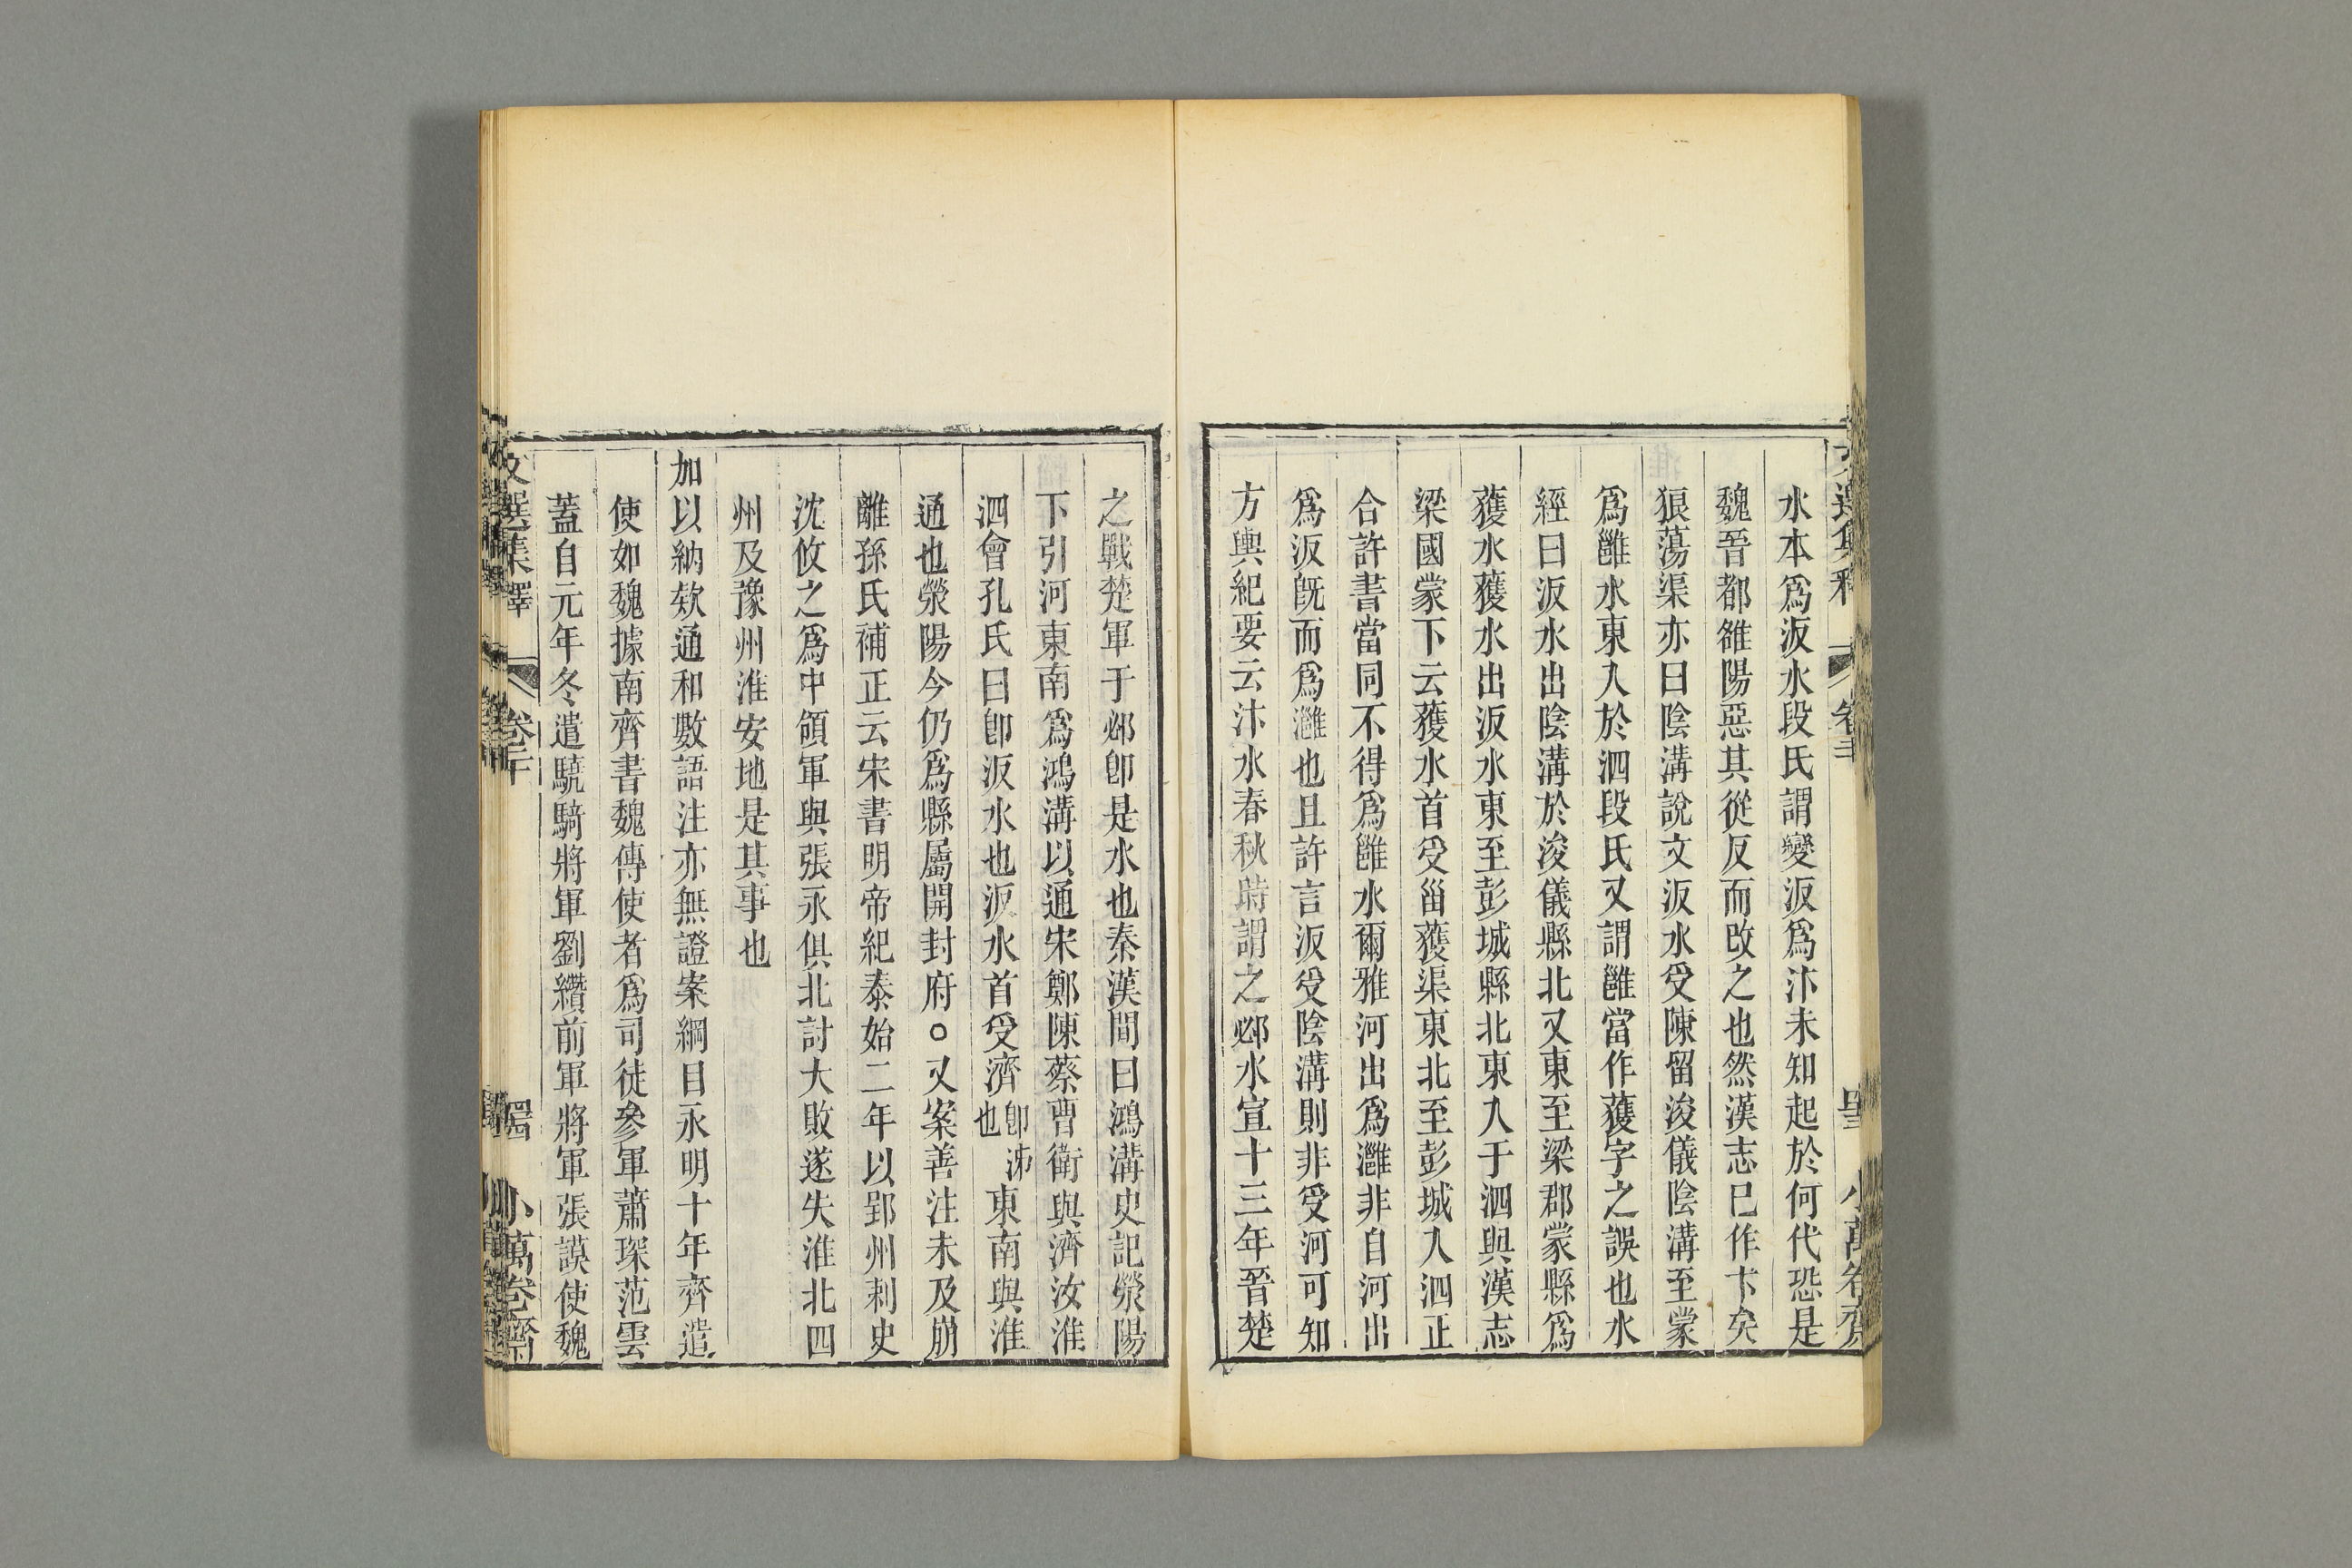 水本爲汳水段氏謂變汳爲汴未知起於何代恐是
魏晉都雒陽惡其從反而改之也然漢志已作卞矣
狼蕩渠亦曰陰溝說文汳水受陳留浚儀陰溝至蒙
爲雝水東入於泗段氏又謂雝當作獲字之誤也水
經曰汳水出陰溝於浚儀縣北又東至梁郡蒙縣爲
獲水獲水出汳水東至彭城縣北東入于泗與漢志
梁國蒙下云獲水首受甾獲渠東北至彭城入泗正
合許書當同不得爲雝水爾雅河出爲灉非自河出
爲汳旣而爲灉也且許言汳受陰溝則非受河可知
方輿紀要云汴水春秋時謂之邲水宣十三年晉楚
之戰楚軍于邲卽是水也秦漢間曰鴻溝史記滎陽
下引河東南爲鴻溝以通宋鄭陳蔡曹衛與濟汝淮
泗會孔氏曰卽汳水也汳水首受濟卽泲也東南與淮
通也滎陽今仍爲縣屬開封府○又案善注未及崩
離孫氏補正云宋書明帝紀泰始二年以郢州刺史
沈攸之爲中領軍與張永俱北討大敗遂失淮北四
州及豫州淮安地是其事也
加以納欵通和數語注亦無證案綱目永明十年齊遣
使如魏據南齊書魏傳使者爲司徒參軍蕭琛范雲
蓋自元年冬遣驍騎將軍劉纘前軍將軍張謨使魏
文選集釋 卷二十 四 小萬卷齋